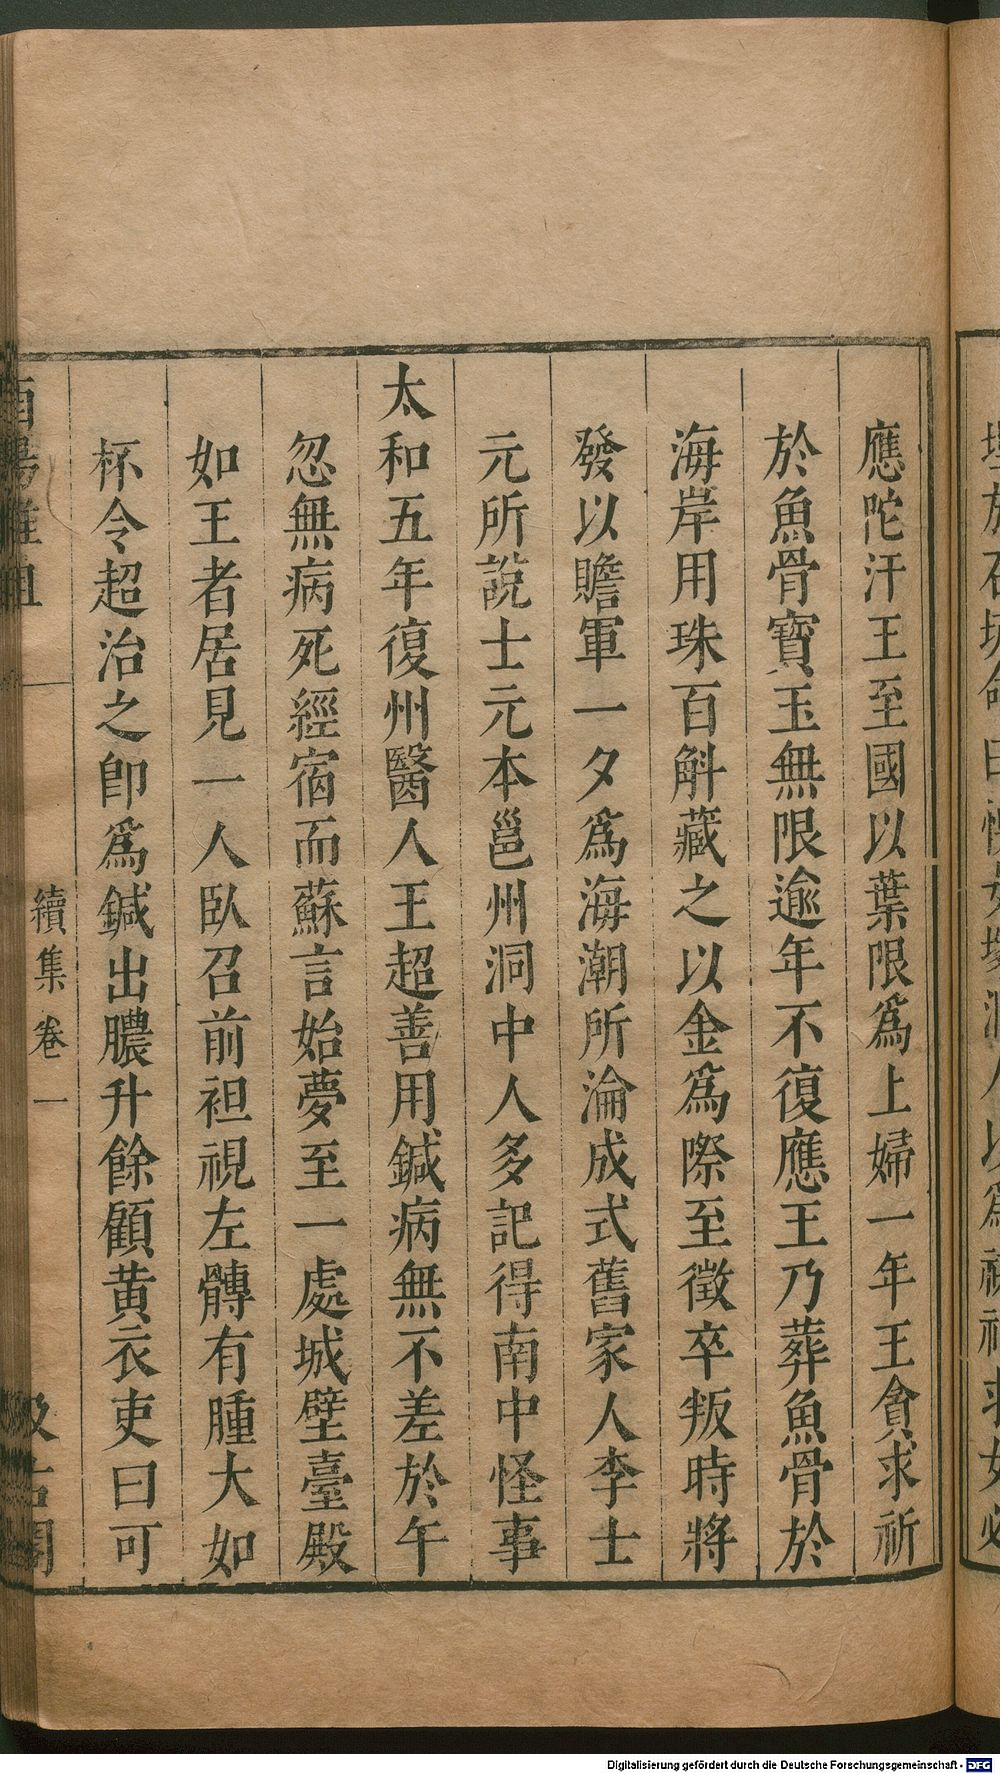 應陀汗王至國以葉限爲上婦一年王貪求祈
於魚骨寶玉無限逾年不復應王乃葬魚骨於
海岸用珠百斛藏之以金爲際至徵卒叛時將
發以贍軍一夕爲海潮所淪成式舊家人李士
元所說士元本邕州洞中人多記得南中怪事
太和五年復州醫人王超善用鍼病無不差於午
忽無病死經宿而蘇言始夢至一處城壁臺殿
如王者居見一人臥召前袒視左髆有腫大如
杯令超治之卽爲鍼出膿升餘顧黄衣吏曰可
續集卷一
Digitalisierung gefördert durch die Deutsche Forschungsgemeinschaft - DFG